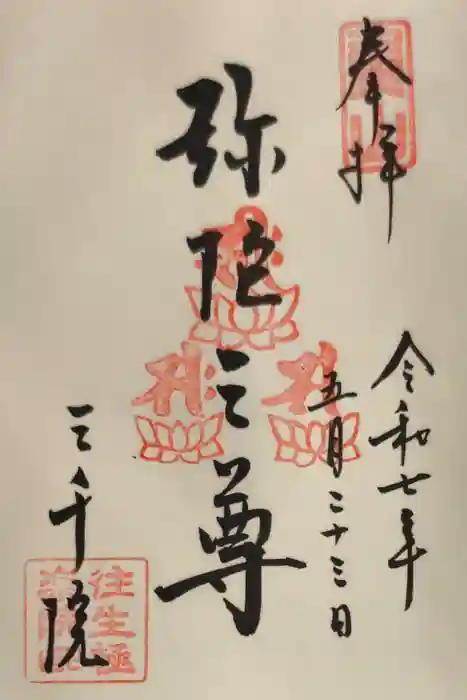 奉拝
令和七年
五月二十三日
弥陀三尊
三千院
往生極